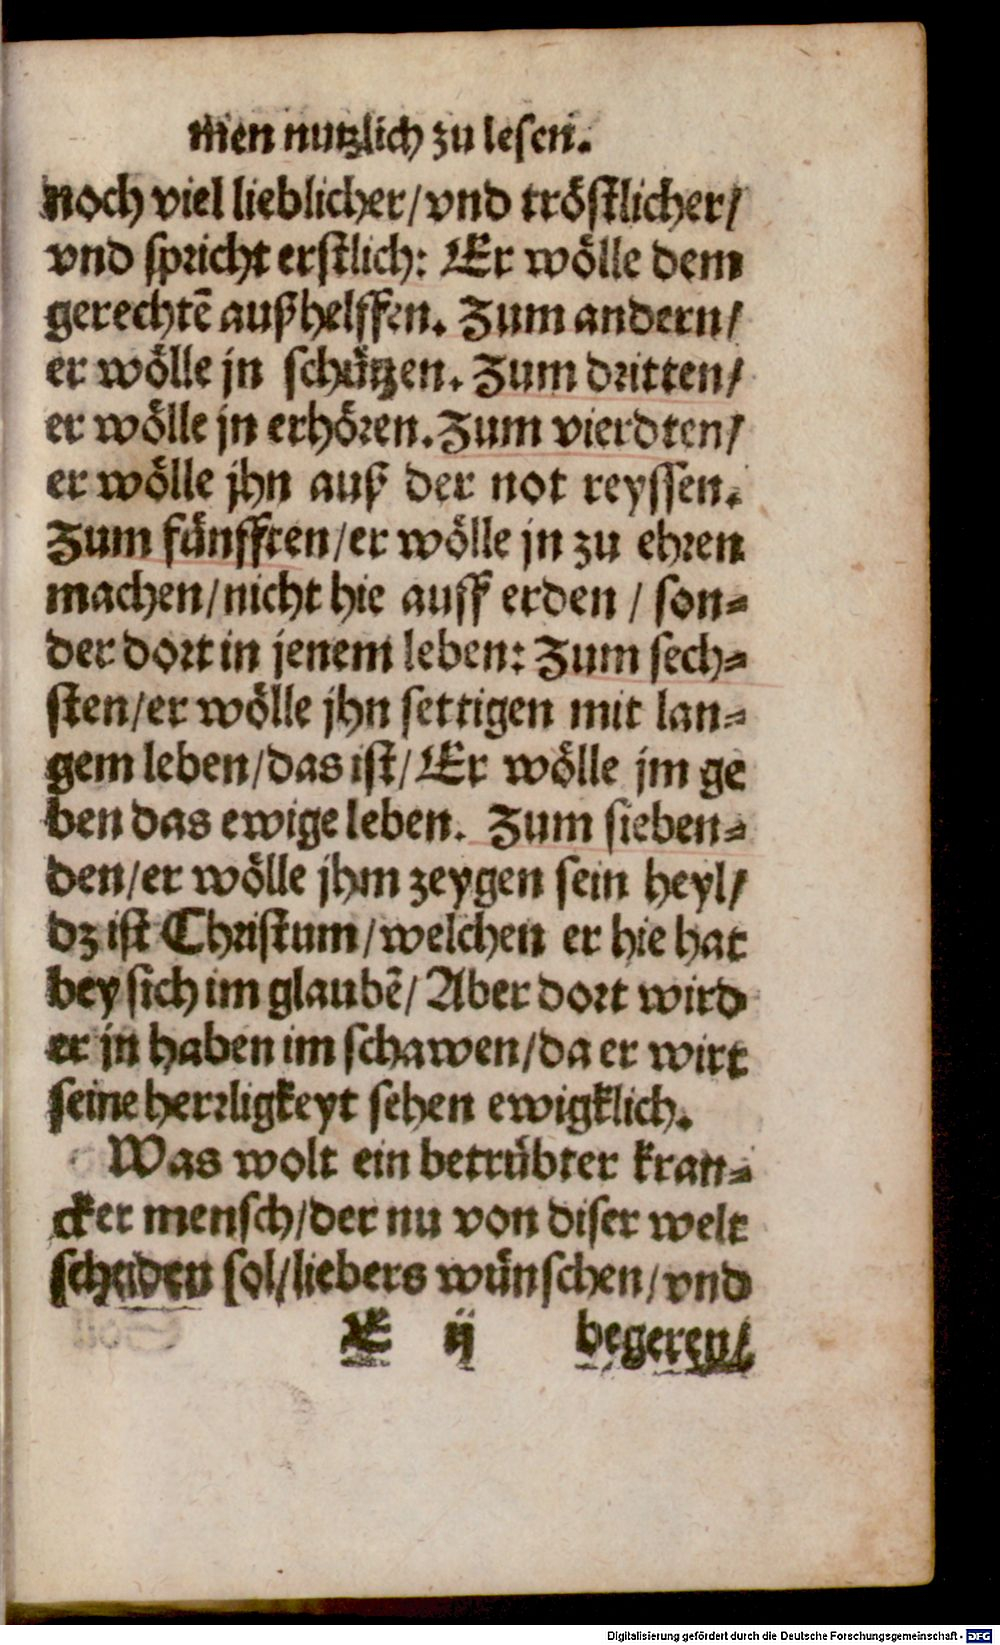 men nutzlich zu lesen.
noch viel lieblicher/vnd tröstlicher/
vnd spricht erstlich: Er wölle dem
gerechtē außhelffen. Zum andern/
er wölle jn schützen. Zum dritten/
er wölle jn erhören. Zum vierdten/
er wölle jhn auß der not reyssen.
Zum fünfften/er wölle jn zu ehren
machen/nicht hie auff erden / son-
der dort in jenem leben: Zum sech-
sten/er wölle jhn settigen mit lan-
gem leben/das ist/ Er wölle jm ge
ben das ewige leben. Zum sieben-
den/er wölle jhm zeygen sein heyl/
dz ist Christum/welchen er hie hat
bey sich im glaubē/ Aber dort wird
er jn haben im schawen/da er wirt
seine herrligkeyt sehen ewigklich.
Was wolt ein betrübter kran-
cker mensch/der nu von diser welt
scheiden sol/liebers wünschen/vnd
E ij begeren/
Digitalisierung gefördert durch die Deutsche Forschungsgemeinschaft - DFG